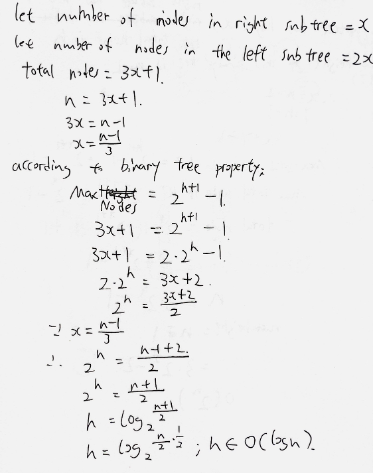 let number of nodes in right subtree = x
let nmber of nodes in the left subtree = 2x
total nodes = 3x+1.
n = 3x+1.
3x = n-1
x = \frac{n-1}{3}
according to binary tree property:
Max Nodes = 2^{h+1} - 1.
3x+1 = 2^{h+1} - 1.
3x+1 = 2·2^h - 1.
2·2^h = 3x+2.
2^h = \frac{3x+2}{2}
∵ x = \frac{n-1}{3}
∴ 2^h = \frac{n-1+2}{2}
2^h = \frac{n+1}{2}
h = log_2 \frac{n+1}{2}
h = log_2 \frac{n}{2}·\frac{1}{2} ; h ∈ O(logn).